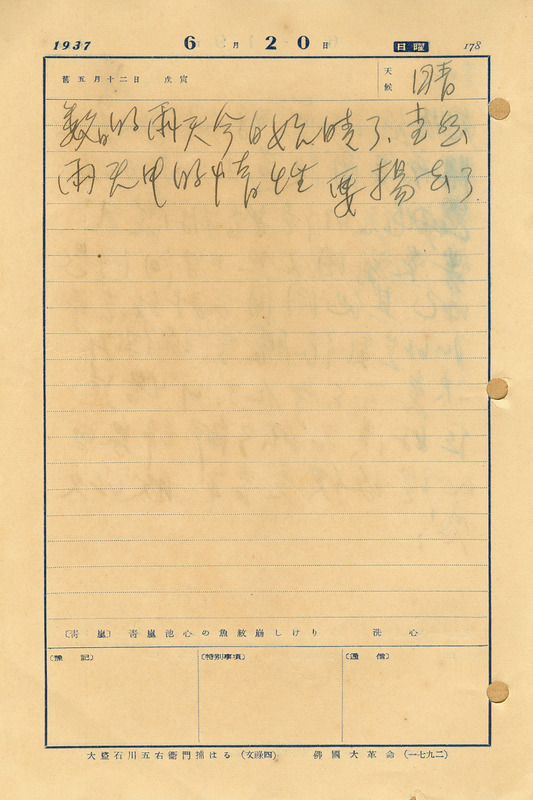 1937 6月20日 日曜 178
舊五月十二日 戊寅 天候 晴
数日的雨天今日始晴了、
雨天中的情性 要揚去了
〔靑嵐〕 靑嵐池心の魚紋崩しけり 洗心
〔豫記〕 〔特別事項〕 〔通信〕
大盜石川五右衞門捕はる（文祿四） 佛國大革命（一七九二）